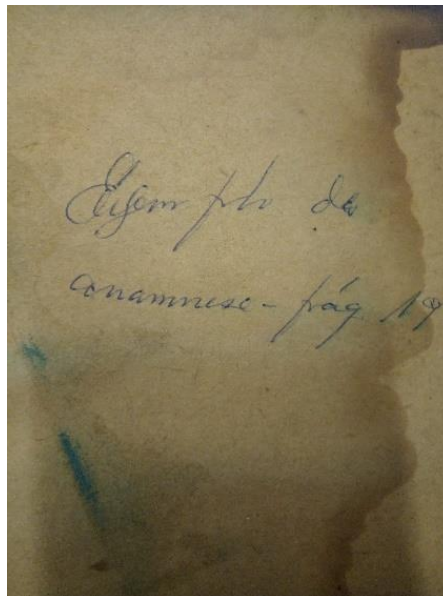 Exemplo de
anamnese - pág 19